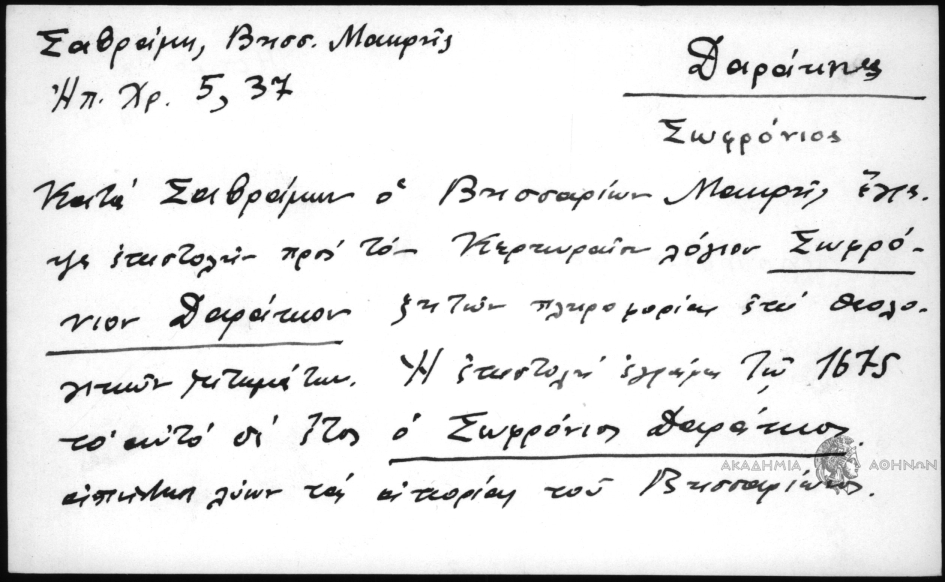 Σαβράμη, Βησσ. Μακρῆς
Ἠπ. Χρ. 5, 37
Δαράκης
Σωφρόνιος
Κατά Σαβράμην ὁ Βησσαρίων Μακρῆς ἔγρα-
ψε ἐπιστολήν πρός τόν Κερκυραῖον λόγιον Σωφρό-
νιον Δαράκιον ζητῶν πληροφορίας ἐπί θεολο-
γικῶν ζητημάτων. Ἡ ἐπιστολή ἐγράφη τῷ 1675
τό αὐτό δέ ἔτος ὁ Σωφρόνιος Δαράκιος
λύων τάς ἀπορίας τοῦ Βησσαρίωνος.
ΑΚΑΔΗΜΙΑ ΑΘΗΝΩΝ